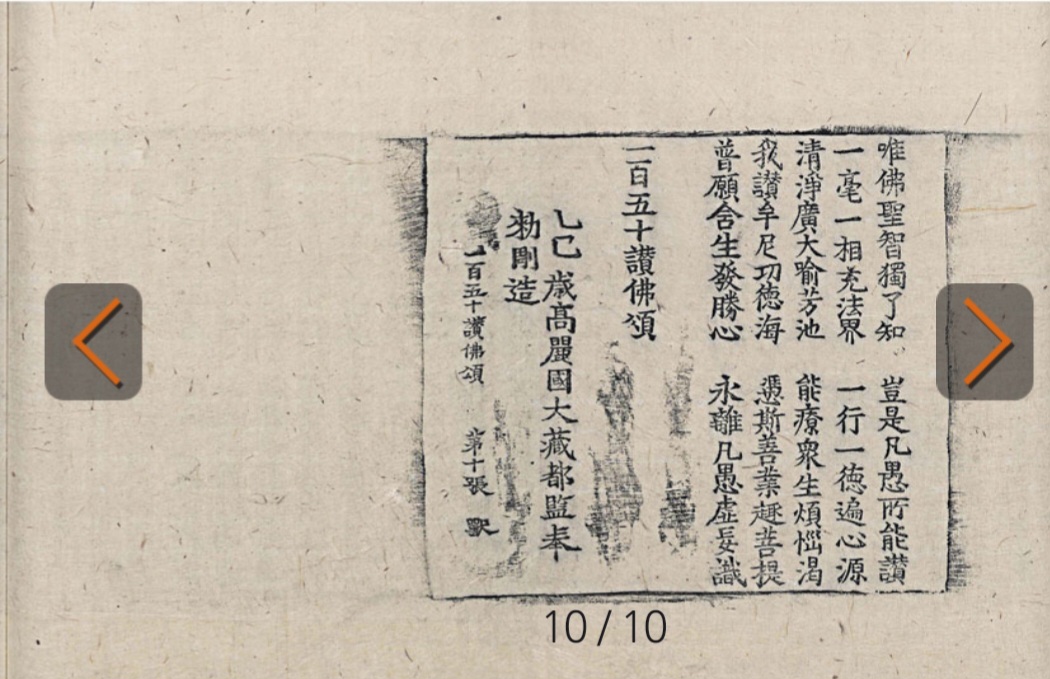 唯佛聖智獨了知　豈是凡愚所能讚
一毫一相充法界　一行一德遍心源
清淨廣大喻芳池　能療衆生煩惱渴
我讚牟尼功德海　憑斯善業趣菩提
普願含生發勝心　永離凡愚虛妄識
一百五十讚佛頌
乙巳歲高麗國大藏都監奉
勅彫造
一百五十讚佛頌　第十張　獸
10 / 10